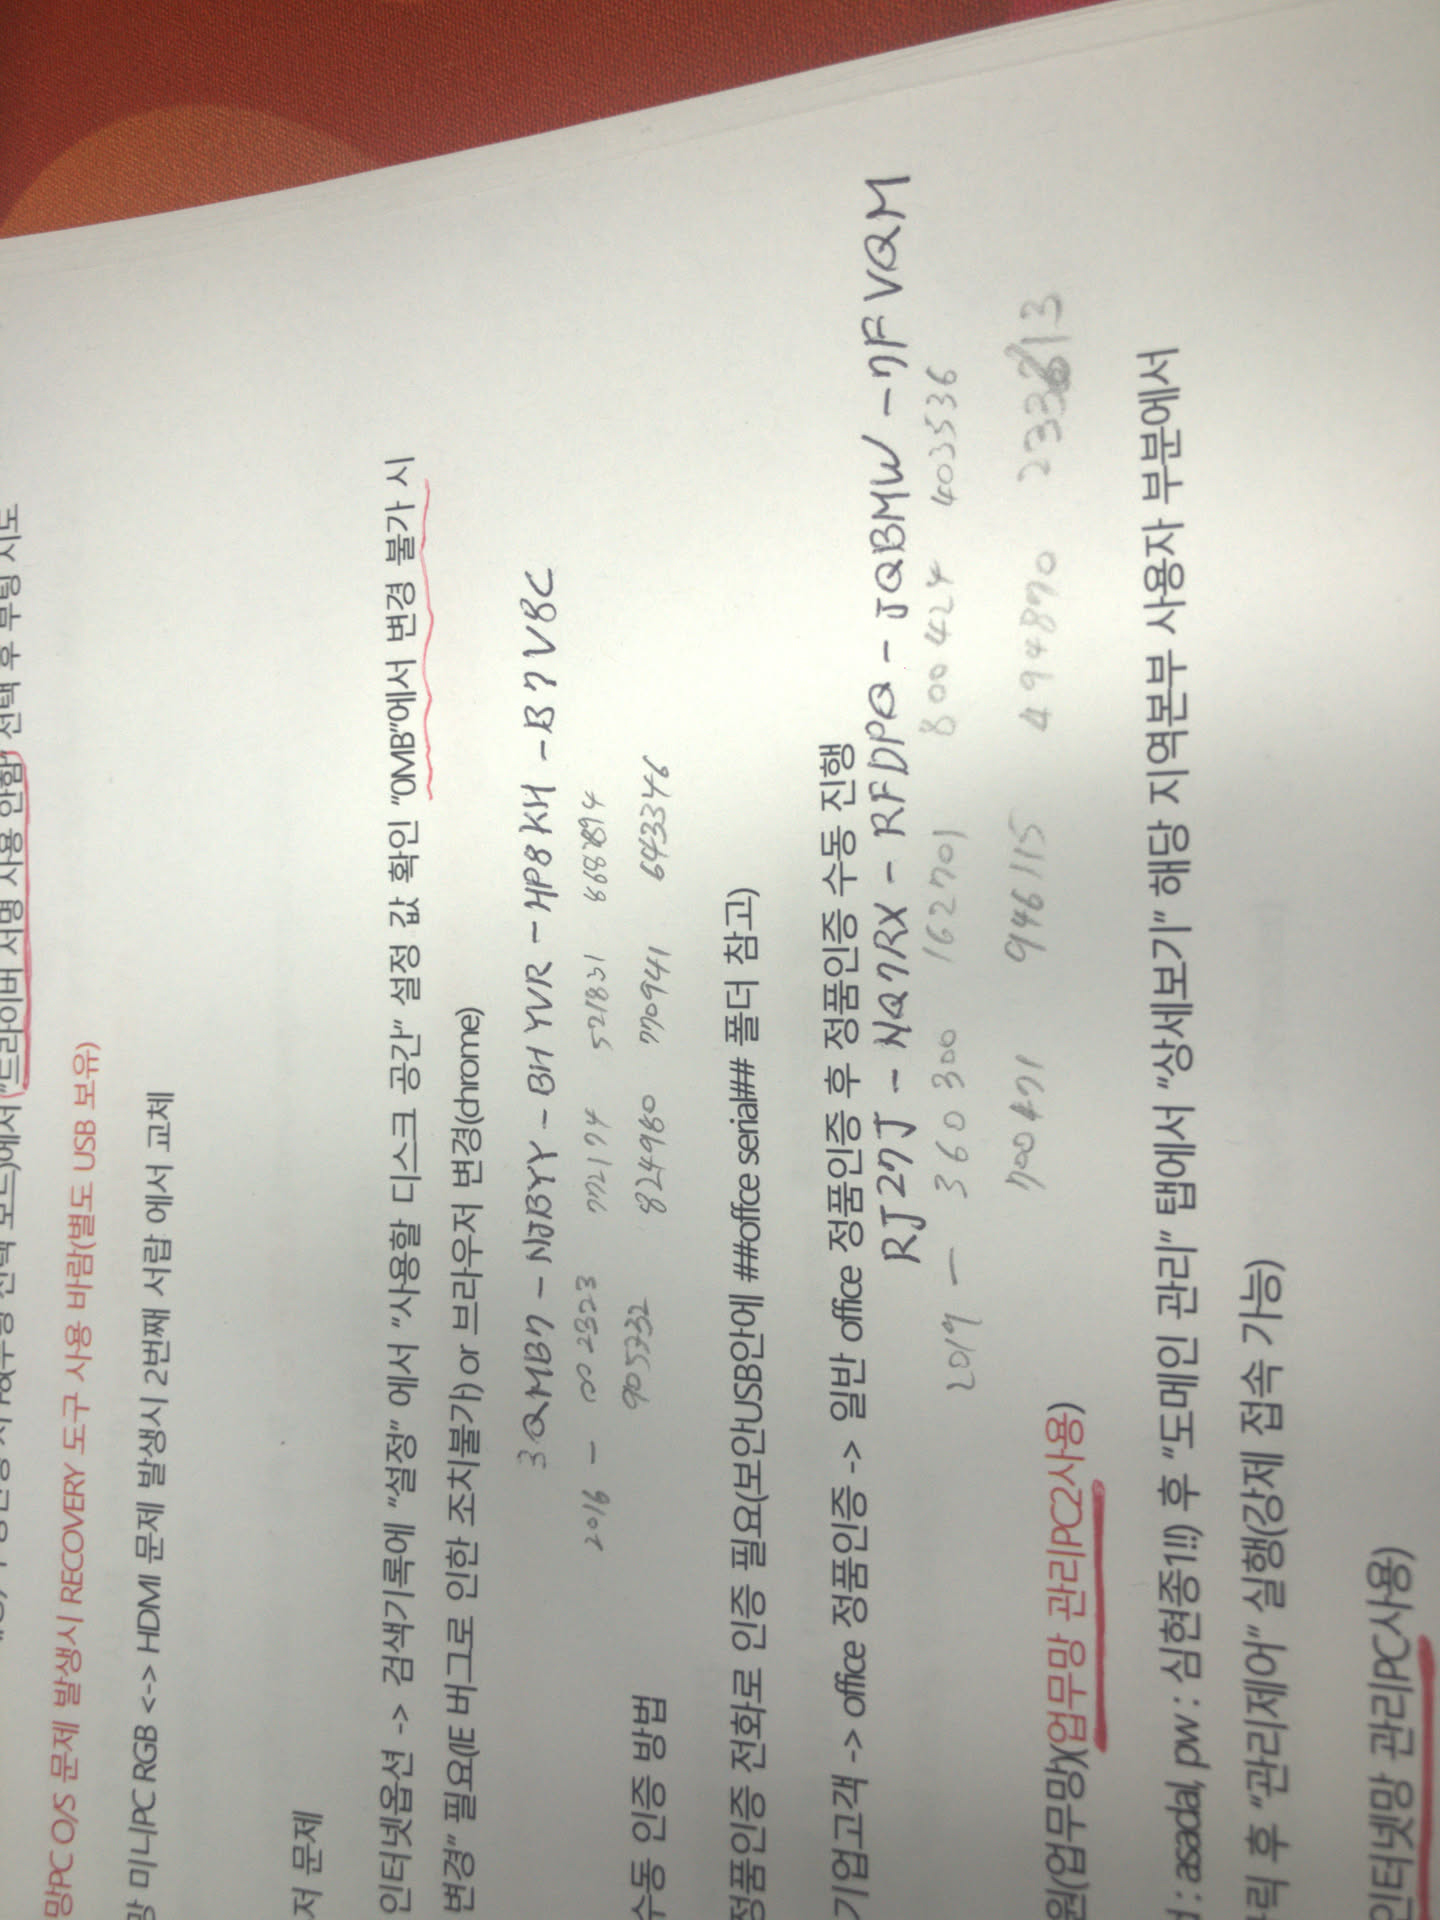 "드라이버 서명 사용 안함" 선택 후 부팅 시도
망PC O/S 문제 발생시 RECOVERY 도구 사용 바람(별도 USB 보유)
망 미니PC RGB <-> HDMI 문제 발생시 2번째 서랍 에서 교체
저 문제
인터넷옵션 -> 검색기록에 "설정" 에서 "사용할 디스크 공간" 설정 값 확인 "0MB"에서 변경 불가 시
변경" 필요(IE 버그로 인한 조치불가) or 브라우저 변경(chrome)
3QMB7 - NJBYY - BHYVR - HP8KH - B7VBC
2016 - 002323 772174 521831
수동 인증 방법
905732 824960 770941 643346
정품인증 전화로 인증 필요(보안USB안에 ##offce serial## 폴더 참고)
기업고객 -> office 정품인증 -> 일반 office 정품인증 후 정품인증 수동 진행
RJ27J - NQ7RX - RFDPQ - JQBMW - 7FVQM
2019 - 360300 162701 800424 403536
700471 946115 494870
원(업무망)(업무망 관리PC2사용)
: asadal, pw : 심현종1!!!) 후 "도메인 관리" 탭에서 "상세보기" 해당 지역본부 사용자 부분에서
릭 후 "관리제어" 실행(강제 접속 가능)
인터넷망 관리PC사용)